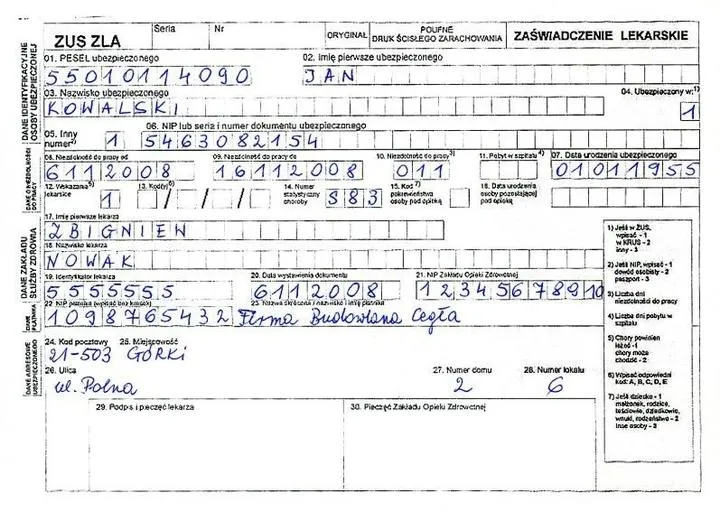 ZUS ZLA Seria Nr ORYGINAŁ POUFNE DRUK ŚCISŁEGO ZARACHOWANIA ZAŚWIADCZENIE LEKARSKIE
DANE IDENTYFIKACYJNE OSOBY UBEZPIECZONEJ
01. PESEL ubezpieczonego 02. Imię pierwsze ubezpieczonego
55010114090 JAN
03. Nazwisko ubezpieczonego 04. Ubezpieczony w:1)
KOWALSKI 1
05. Inny numer2) 06. NIP lub seria i numer dokumentu ubezpieczonego
1 5463082154
08. Niezdolność do pracy od 09. Niezdolność do pracy do 10. Niezdolność do pracy3) 11. Pobyt w szpitalu4) 07. Data urodzenia ubezpieczonego
6112008 16112008 011 01011955
12. Wskazania5) lekarskie 13. Kod(y)6) 14. Numer statystyczny choroby 15. Kod7) pokrewieństwa osoby pod opieką 16. Data urodzenia osoby pozostającej pod opieką
1 / / / S83
DANE ZAKŁADU SŁUŻBY ZDROWIA
17. Imię pierwsze lekarza
ZBIGNIEW
18. Nazwisko lekarza
NOWAK
19. Identyfikator lekarza 20. Data wystawienia dokumentu 21. NIP Zakładu Opieki Zdrowotnej
5555555 6112008 12345678910
22. NIP płatnika (wpisać bez kresek)
1098765432 Firma Budowlana Cegła
DANE ADRESOWE UBEZPIECZONEGO
24. Kod pocztowy 25. Miejscowość
21-503 GÓRKI
26. Ulica 27. Numer domu 28. Numer lokalu
ul. Polna 2 6
29. Podpis i pieczęć lekarza 30. Pieczęć Zakładu Opieki Zdrowotnej
1) Jeśli w ZUS,
wpisać - 1
w KRUS - 2
inny - 3
2) Jeśli NIP, wpisać - 1
dowód osobisty - 2
paszport - 3
3) Liczba dni
niezdolności do pracy
4) Liczba dni pobytu w
szpitalu
5) Chory powinien
leżeć -1
chory może
chodzić - 2
6) Wpisać odpowiedni
kod: A, B, C, D, E
7) Jeśli dziecko - 1
małżonek, rodzice,
teściowie, dziadkowie,
wnuki, rodzeństwo - 2
inne osoby - 3